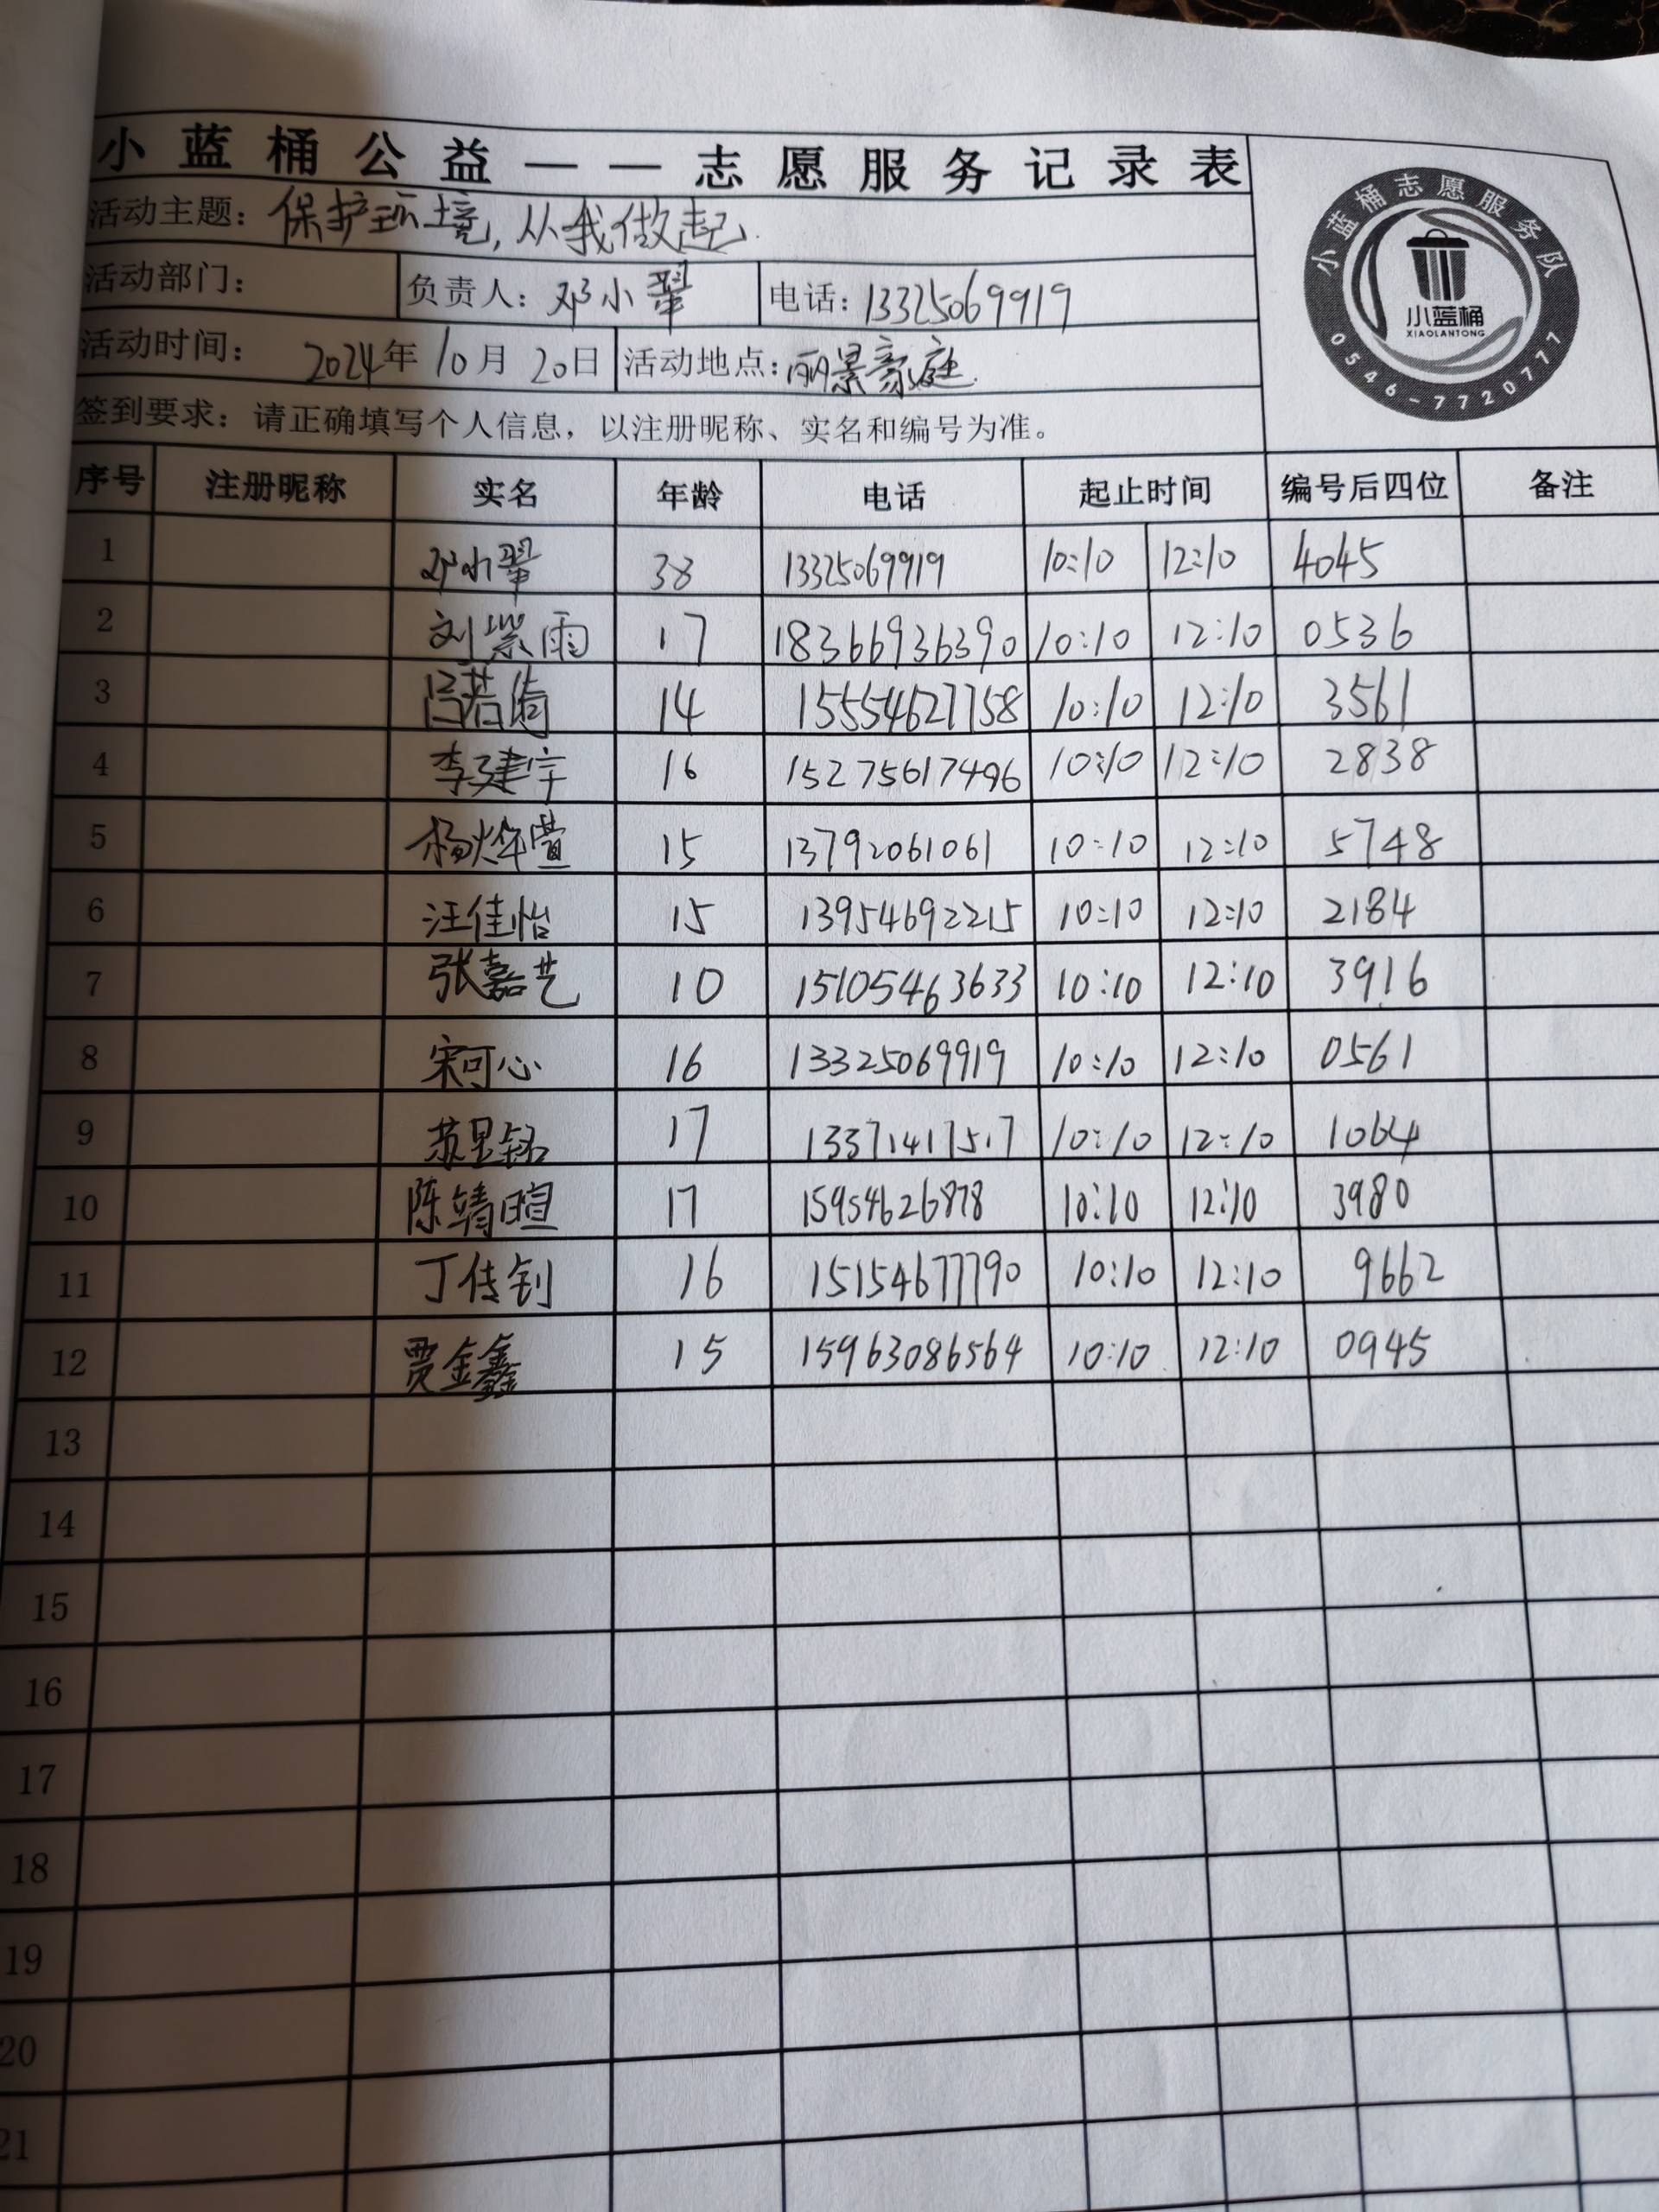 小蓝桶公益——志愿服务记录表
小蓝桶志愿服务队
小蓝桶
XIAOLANTONG
0546-7720777
活动主题：保护环境，从我做起.
活动部门： 负责人：邓小翠 电话：13325069919
活动时间： 2024年10月20日 活动地点：丽景豪庭.
签到要求：请正确填写个人信息，以注册昵称、实名和编号为准。
序号 注册昵称 实名 年龄 电话 起止时间 编号后四位 备注
1 邓小翠 38 13325069919 10:10 12:10 4045
2 刘紫雨 17 18366936390 10:10 12:10 0536
3 吕若倚 14 15554627758 10:10 12:10 3561
4 李建宇 16 15275617496 10:10 12:10 2838
5 杨烨萱 15 13792061061 10:10 12:10 5748
6 汪佳怡 15 13954692215 10:10 12:10 2184
7 张嘉艺 10 15105463633 10:10 12:10 3916
8 宋可心 16 13325069919 10:10 12:10 0561
9 苏昱铭 17 13371417517 10:10 12:10 1064
10 陈靖暄 17 15954626878 10:10 12:10 3980
11 丁传钊 16 15154677790 10:10 12:10 9662
12 贾金鑫 15 15963086564 10:10 12:10 0945
13
14
15
16
17
18
19
20
21